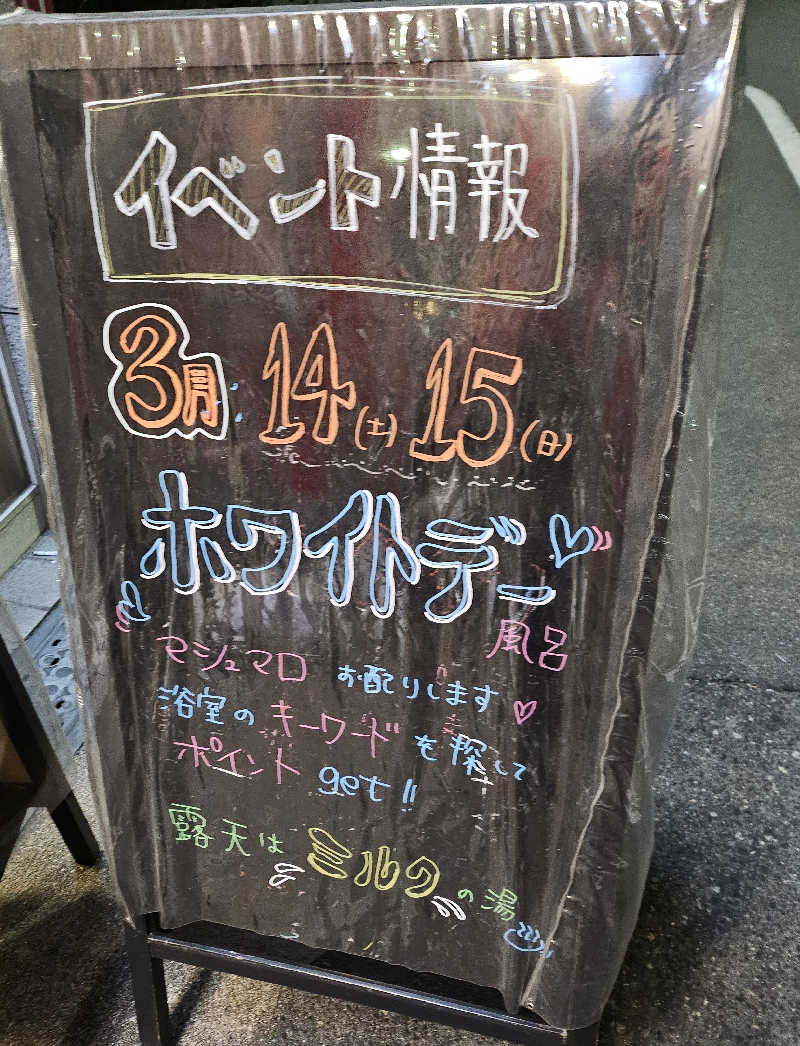 イベント情報
3月 14(土) 15(日)
ホワイトデー
風呂
マシュマロ お配りします
浴室の キーワード を探して
ポイント get!!
露天は ミルク の湯